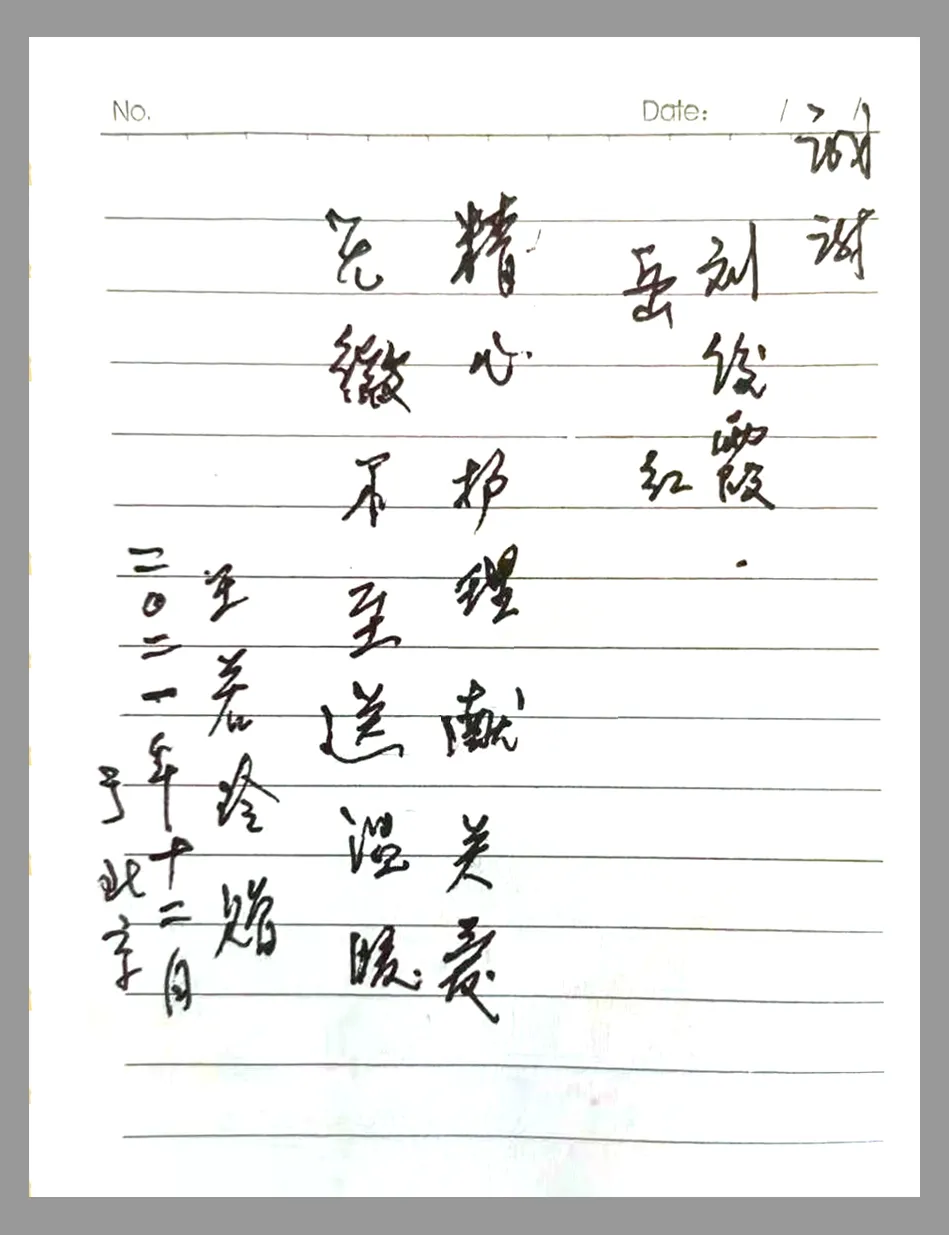 No.
Date: / /
谢谢
刘俊霞
岳红
精心护理献关爱
无微不至送温暖
王若玲赠
二〇二一年十二月
于北京